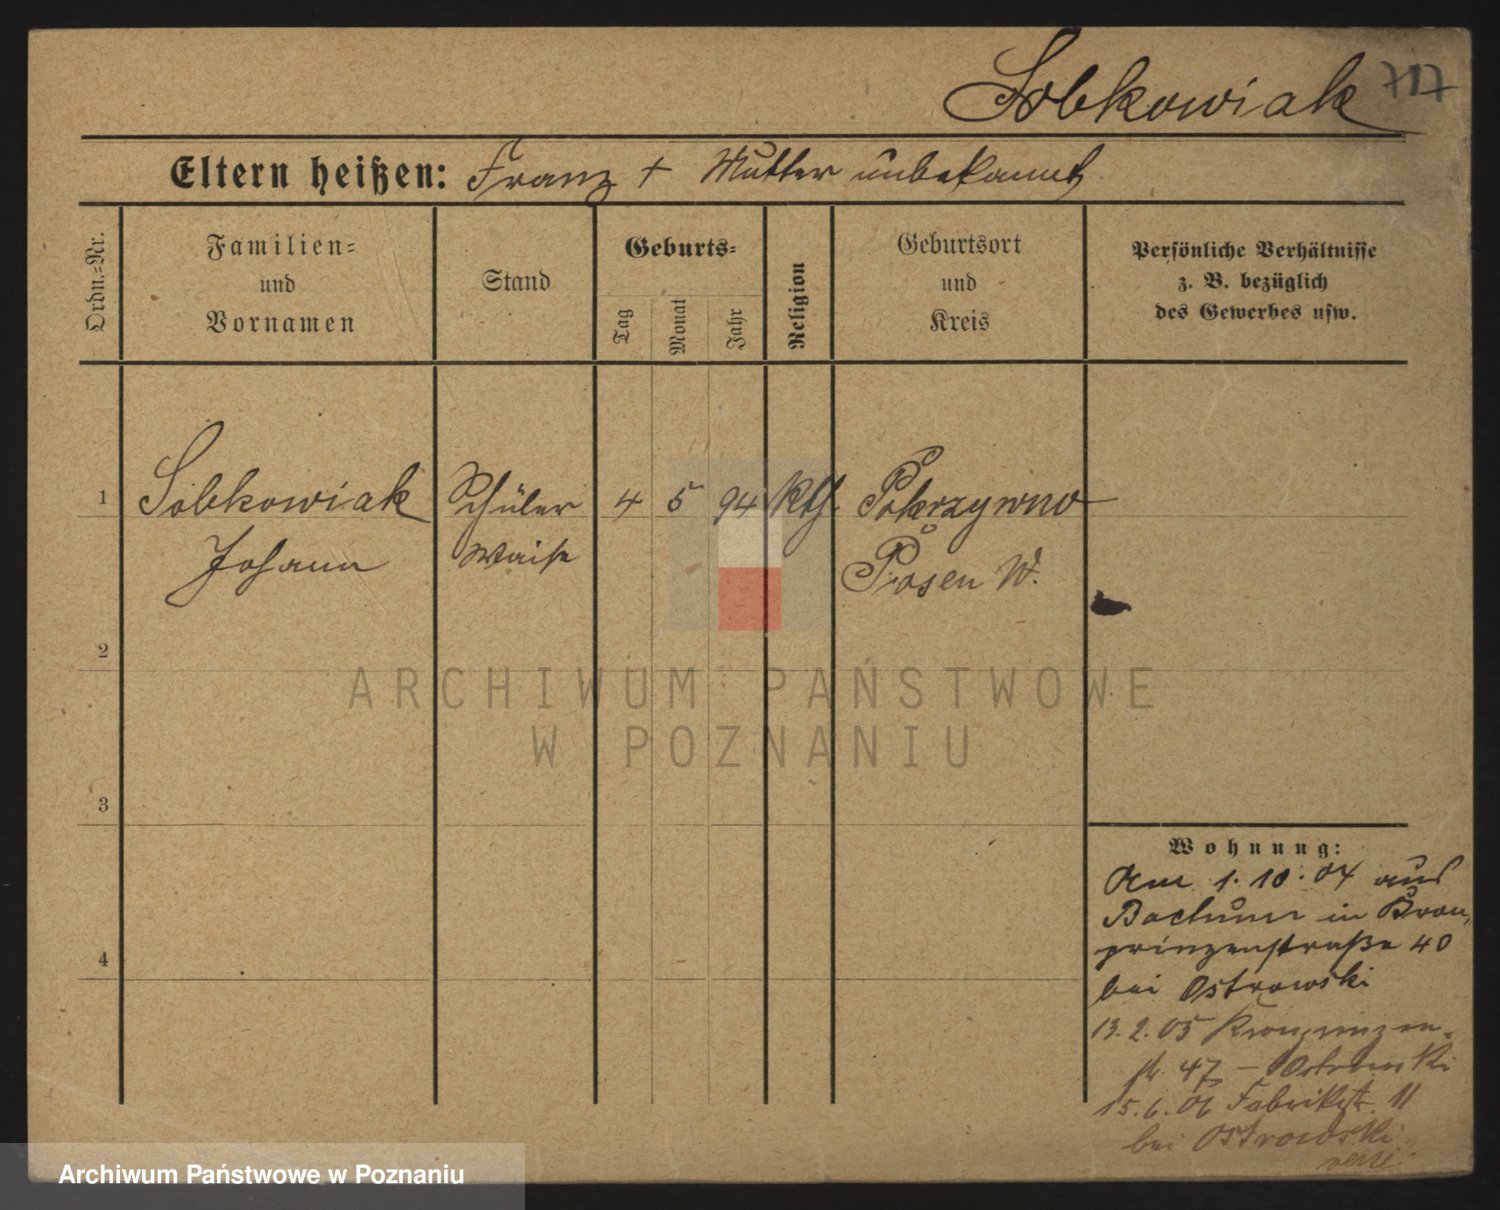 Sobkowiak 717
Eltern heißen: Franz + Mutter unbekannt
Ordn.=Nr.
Familien=
und
Vornamen
Stand
Geburts=
Tag
Monat
Jahr
Religion
Geburtsort
und
Kreis
Persönliche Verhältnisse
z. B. bezüglich
des Gewerbes usw.
1 Sobkowiak Schüler 4 5 94 kth. Pokrzywno
Johann Waise Posen W.
2
ARCHIWUM PAŃSTWOWE
W POZNANIU
3
4
Wohnung:
Am 1.10.04 aus
Bochum in Kron,
prinzenstraße 40
bei Ostrowski
13.2.05 Kronprinzen-
str. 47 – Ostrowski
15.6.06 Fabrikstr. 11
bei Ostrowski
Archiwum Państwowe w Poznaniu